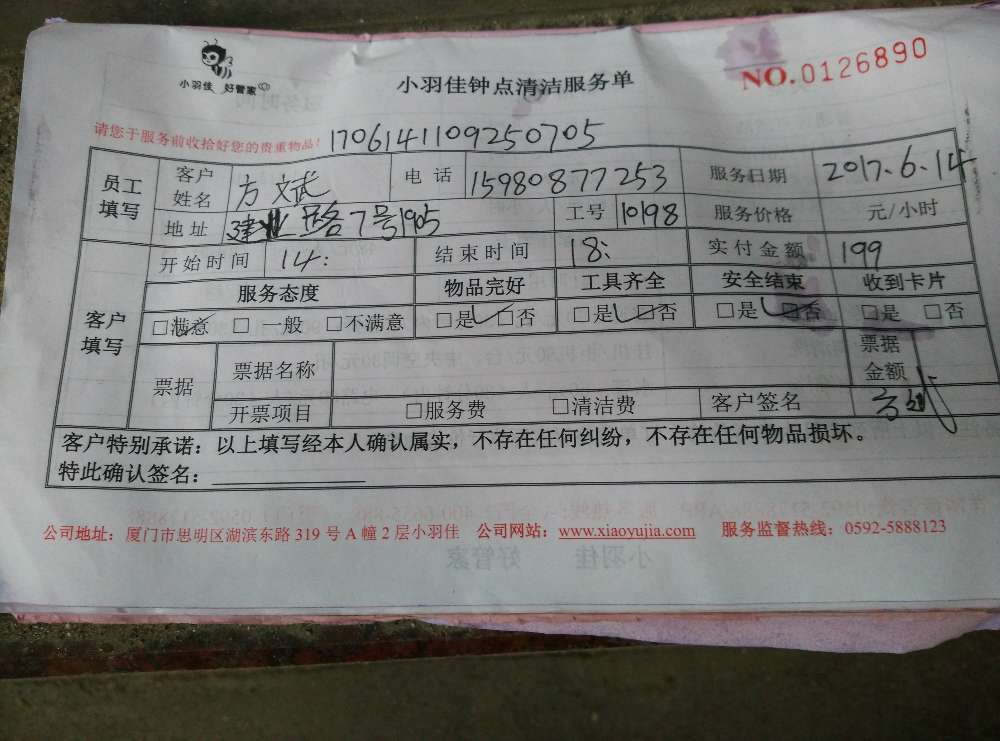 小羽佳 好管家
小羽佳钟点清洁服务单
NO.0126890
请您于服务前收拾好您的贵重物品! 170614110925070​5
员工填写 客户姓名 方文斌 电话 15980877253 服务日期 2017.6.14
地址 建业路7号1905 工号 10198 服务价格 元/小时
客户填写 开始时间 14: 结束时间 18: 实付金额 199
服务态度 物品完好 工具齐全 安全结束 收到卡片
□满意 □一般 □不满意 □是 □否 □是 □否 □是 □否 □是 □否
票据 票据名称 票据金额
开票项目 □服务费 □清洁费 客户签名
客户特别承诺：以上填写经本人确认属实，不存在任何纠纷，不存在任何物品损坏。
特此确认签名：
公司地址：厦门市思明区湖滨东路319号A幢2层小羽佳 公司网站：www.xiaoyujia.com 服务监督热线：0592-5888123